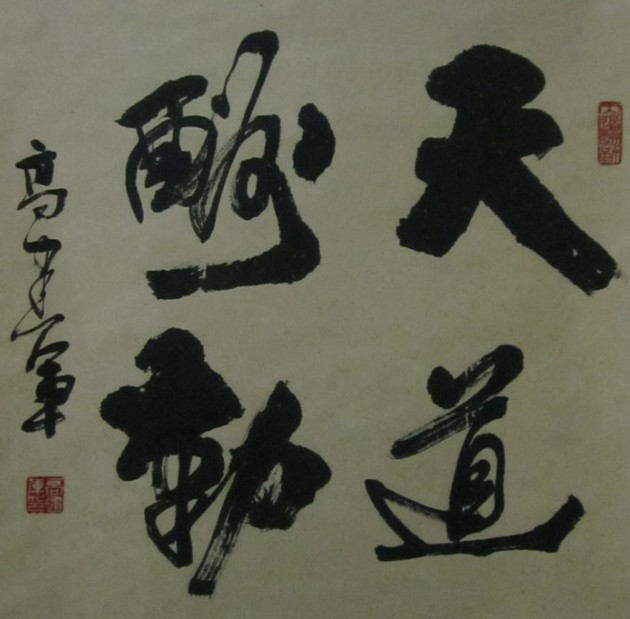 天道
酬勤
高 軍